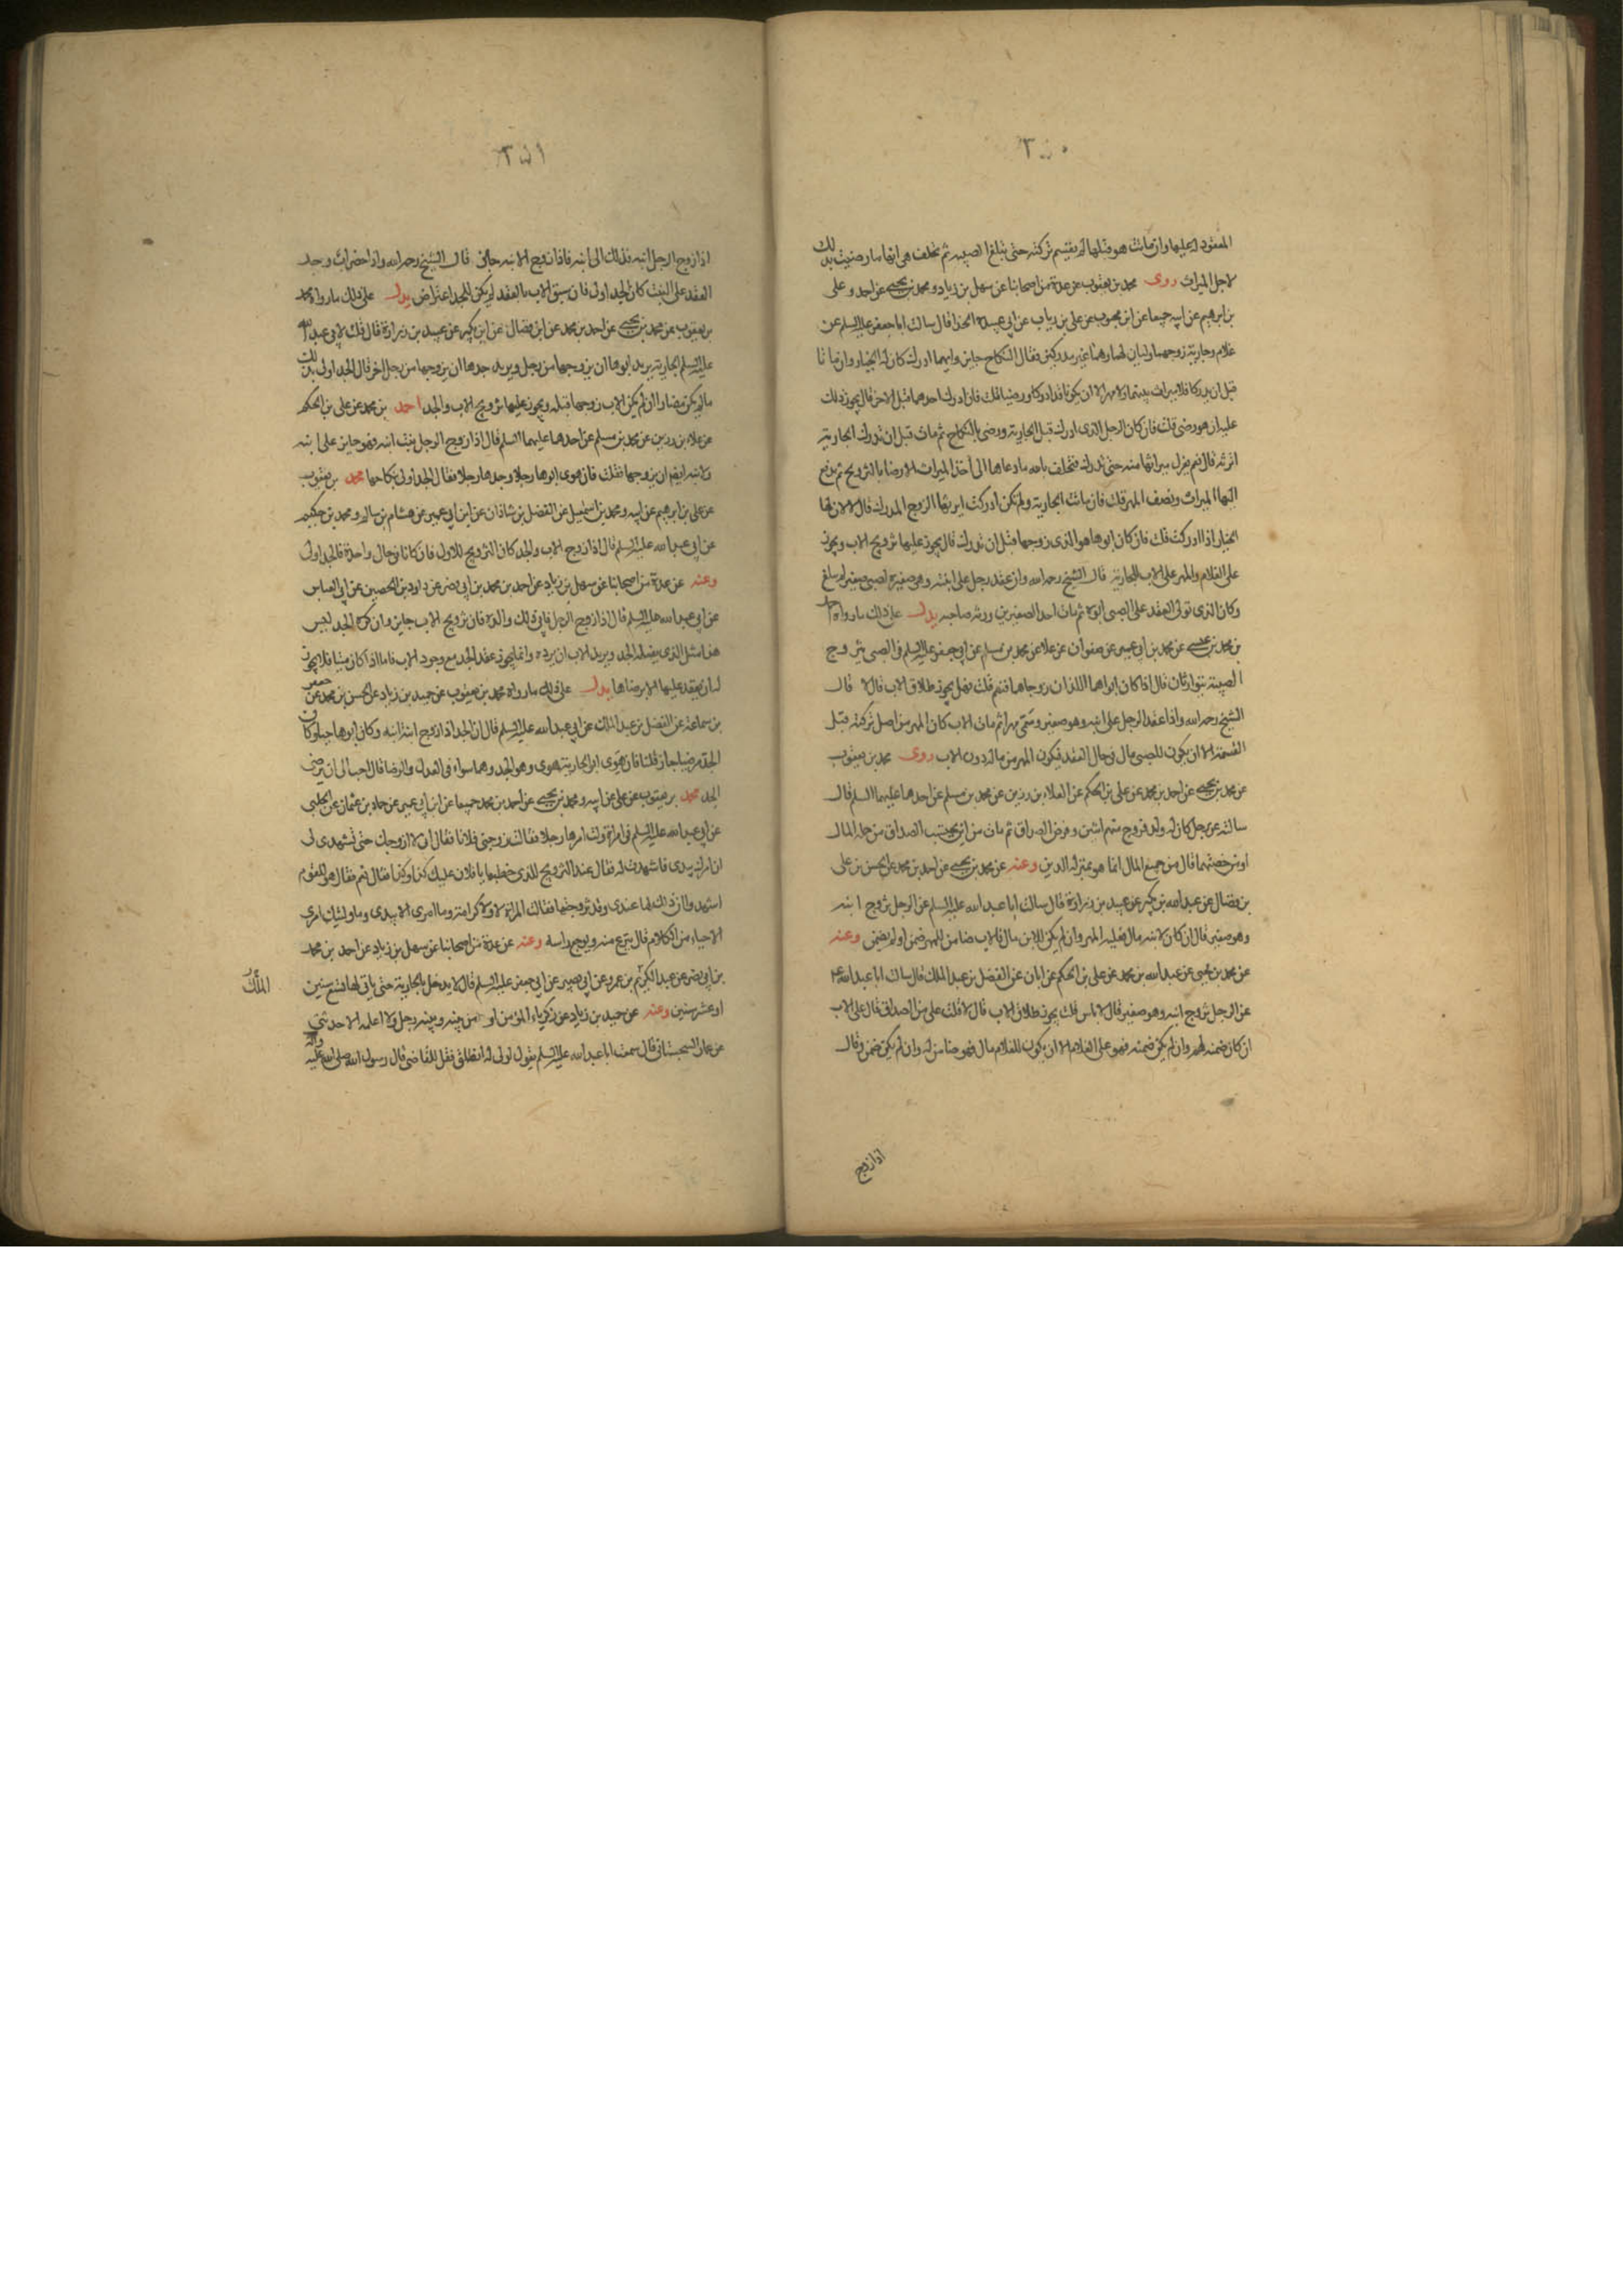 ٣٥٠
المعقود له عليها وان مات هو قبلها لم يقسم تركته حتى تبلغ الصبية ثم تحلف هي انها ما رضيت بذلك
لاجل الميراث روى محمد بن يعقوب عن عدة من اصحابنا عن سهل بن زياد و محمد بن يحيى عن احمد و على
بن ابرهيم عن ابيه جميعا عن ابن محبوب عن على بن رياب عن ابي عبيدة الحذا قال سالت ابا جعفر عليه السلم عن
غلام وجارية زوجهما وليان لهما وهما غير مدركين فقال النكاح جايز وايهما ادرك كان له الخيار وان ماتا
قبل ان يدركا فلا ميراث بينهما ولا مهر الا ان يكونا قد ادركا ورضيا قلت فان ادرك احدهما قبل الاخر قال يجوز ذلك
عليه ان هو رضى قلت فان كان الرجل الذى ادرك قبل الجارية ورضى بالنكاح ثم مات قبل ان تدرك الجارية
اترثه قال نعم يعزل ميراثها منه حتى تدرك فتحلف بالله ما دعاها الى أخذ الميراث الا رضاها بالتزويج ثم يدفع
اليها الميراث ونصف المهر قلت فان ماتت الجارية ولم تكن ادركت ايرثها الزوج المدرك قال لا لان لها
الخيار اذا ادركت قلت فان كان ابوها هو الذى زوجها قبل ان تدرك قال يجوز عليها تزويج الاب ويجوز
على الغلام والمهر على الاب للجارية قال الشيخ رحمه الله وان عقد رجل على ابنته وهي صغيرة لصبي صغير لم يبلغ
وكان الذى تولى العقد على الصبى ابوه ثم مات احد الصغيرين ورثه صاحبه يدل على ذلك ما رواه
بن محمد بن عيسى عن محمد بن ابي عمير عن صفوان عن علا عن محمد بن مسلم عن ابي جعفر عليه السلم في الصبى يتزوج
الصبية يتوارثان قال اذا كان ابواهما اللذان زوجاهما فنعم قلت فهل يجوز طلاق الاب قال لا قال
الشيخ رحمه الله واذا عقد الرجل على ابنه وهو صغير وسمى مهرا ثم مات الاب كان المهر من اصل تركته قبل
القسمة الا ان يكون للصبى مال في حال العقد فيكون المهر من ماله دون الاب روى محمد بن يعقوب
عن محمد بن يحيى عن احمد بن محمد عن على بن الحكم عن العلاء بن رزين عن محمد بن مسلم عن احدهما عليهما السلم قال
سالته عن رجل كان له ولد فزوج منهم اثنين وفرض الصداق ثم مات من اين يحتسب الصداق من جملة المال
او من حصتهما قال من جميع المال انما هو بمنزلة الدين وعنه عن محمد بن يحيى عن احمد بن محمد عن الحسن بن على
بن فضال عن عبد الله بن بكير عن عبيد بن زرارة قال سالت ابا عبد الله عليه السلم عن الرجل يزوج ابنه
وهو صغير قال ان كان لابنه مال فعليه المهر وان لم يكن للابن مال فالاب ضامن للمهر ضمن او لم يضمن وعنه
عن محمد بن يحيى عن عبد الله بن محمد عن على بن الحكم عن ابان عن الفضل بن عبد الملك قال سالت ابا عبد الله ع
عن الرجل يزوج ابنه وهو صغير قال لا باس قلت يجوز طلاق الاب قال لا قلت على من الصداق قال على الاب
ان كان ضمنه لهم وان لم يكن ضمنه فهو على الغلام الا ان يكون للغلام مال فهو ضامن له وان لم يكن ضمن وقال
اذا زوج
٣٥١
اذا زوج الرجل ابنه فذلك الى ابنه فاذا زوج الابنة جاز قال الشيخ رحمه الله واذا حضر اب وجد
العقد على البنت كان الجد اولى فان سبق الاب بالعقد لم يكن للجد اعتراض يدل على ذلك ما رواه محمد
بن يعقوب عن محمد بن يحيى عن احمد بن محمد عن ابن فضال عن ابن بكير عن عبيد بن زرارة قال قلت لابي عبد الله
عليه السلم الجارية يريد ابوها ان يزوجها من رجل ويريد جدها ان يزوجها من رجل اخر قال الجد اولى بذلك
ما لم يكن مضارا ان لم يكن الاب زوجها قبله ويجوز عليها تزويج الاب والجد احمد بن محمد عن على بن الحكم
عن علاء بن رزين عن محمد بن مسلم عن احدهما عليهما السلم قال اذا زوج الرجل بنت ابنه فهو جايز على ابنه
ولابنه ايضا ان يزوجها فقلت فان هوى ابوها رجلا وجدها رجلا فقال الجد اولى بنكاحها محمد بن يعقوب
عن على بن ابرهيم عن ابيه ومحمد بن اسمعيل عن الفضل بن شاذان عن ابن ابي عمير عن هشام بن سالم ومحمد بن حكيم
عن ابي عبد الله عليه السلم قال اذا زوج الاب والجد كان التزويج للاول فان كانا في حال واحدة فالجد اولى
وعنه عن عدة من اصحابنا عن سهل بن زياد عن احمد بن محمد بن ابي نصر عن داود بن الحصين عن ابي العباس
عن ابي عبد الله عليه السلم قال اذا زوج الرجل فابى ذلك والده فان تزويج الاب جايز وان كره الجد ليس
هذا مثل الذى يفعله الجد ويريد الاب ان يرده وانما يجوز عقد الجد مع وجود الاب فاما اذا كان ميتا فلا يجوز
له ان يعقد عليها الا برضاها يدل على ذلك ما رواه محمد بن يعقوب عن حميد بن زياد عن الحسن بن محمد عن جعفر
بن سماعة عن الفضل بن عبد الملك عن ابي عبد الله عليه السلم قال ان الجد اذا زوج ابنة ابنه وكان ابوها حيا وكان
الجد مرضيا جاز قلنا فان هوى ابو الجارية هوى وهو الجد وهما سواء في العدل والرضا قال احب الى ان ترضى
الجد محمد بن يعقوب عن على عن ابيه ومحمد بن يحيى عن احمد بن محمد جميعا عن ابن ابي عمير عن حماد بن عثمان عن الحلبى
عن ابي عبد الله عليه السلم في امراة ولت امرها رجلا فقالت زوجنى فلانا فقال انى لا ازوجك حتى تشهدى لى
ان امرك بيدى فاشهدت له فقال عند التزويج للذى خطبها يا فلان عليك كذا وكذا فقال نعم فقال هو للقوم
اشهدوا ان ذلك لها عندى وقد زوجتها فقالت المراة لا ولا كرامة وما امرى الا بيدى وما وليتك امرى
الا حياء من الكلام قال ينزع منه ويوجع راسه وعنه عن عدة من اصحابنا عن سهل بن زياد عن احمد بن محمد
بن ابي نصر عن عبد الكريم بن عمرو عن ابي بصير عن ابي جعفر عليه السلم قال لا يدخل بالجارية حتى ياتى لها تسع سنين
او عشر سنين وعنه عن حميد بن زياد عن زكرياء المؤمن او من بينه وبينه رجل ولا اعلمه الا حدثنى
عن عمار السجستانى قال سمعت ابا عبد الله عليه السلم يقول لمولى له انطلق فقل للقاضى قال رسول الله صلى الله عليه واله